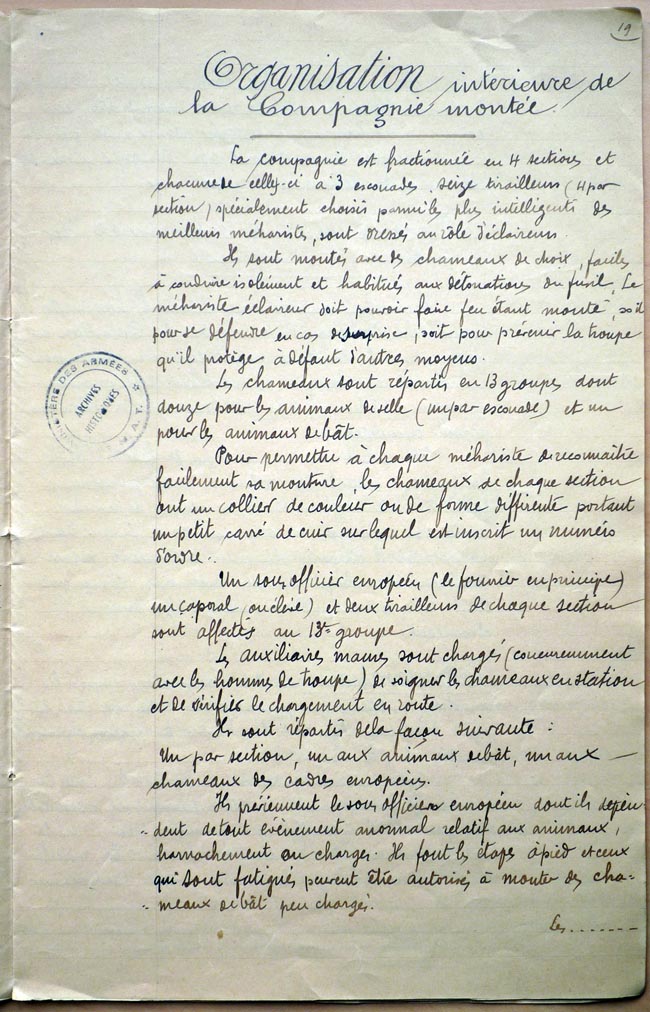 19
Organisation intérieure de
la Compagnie montée.
La compagnie est fractionnée en 4 sections et
chacune de celles-ci à 3 escouades. seize tirailleurs (4 par
section) spécialement choisis parmi les plus intelligents des
meilleurs méharistes, sont dressés au rôle d'éclaireurs.
Ils sont montés avec des chameaux de choix, faciles
à conduire isolément et habitués aux détonations du fusil. Le
méhariste éclaireur doit pouvoir faire feu étant monté, soit
pour se défendre en cas de surprise, soit pour prévenir la troupe
qu'il protège à défaut d'autres moyens.
Les chameaux sont répartis en 13 groupes dont
douze pour les animaux de selle (un par escouade) et un
pour les animaux de bât.
Pour permettre à chaque méhariste de reconnaître
facilement sa monture, les chameaux de chaque section
ont un collier de couleur ou de forme différente portant
un petit carré de cuir sur lequel est inscrit un numéro
d'ordre.
Un sous officier européen (le fourrier en principe)
un caporal (ou élève) et deux tirailleurs de chaque section
sont affectés au 13e groupe.
Les auxiliaires maures sont chargés (concurremment
avec les hommes de troupe) de soigner les chameaux en station
et de vérifier le chargement en route.
Ils sont répartis de la façon suivante :
Un par section, un aux animaux de bât, un aux —
chameaux des cadres européens.
Ils préviennent le sous officier européen dont ils dépen-
-dent de tout évènement anormal relatif aux animaux,
harnachement ou charges. Ils font les étapes à pied et ceux
qui sont fatigués peuvent être autorisés à monter des cha-
-meaux de bât peu chargés.
Les.......
DES ARMÉES
ARCHIVES
HISTORIQUES